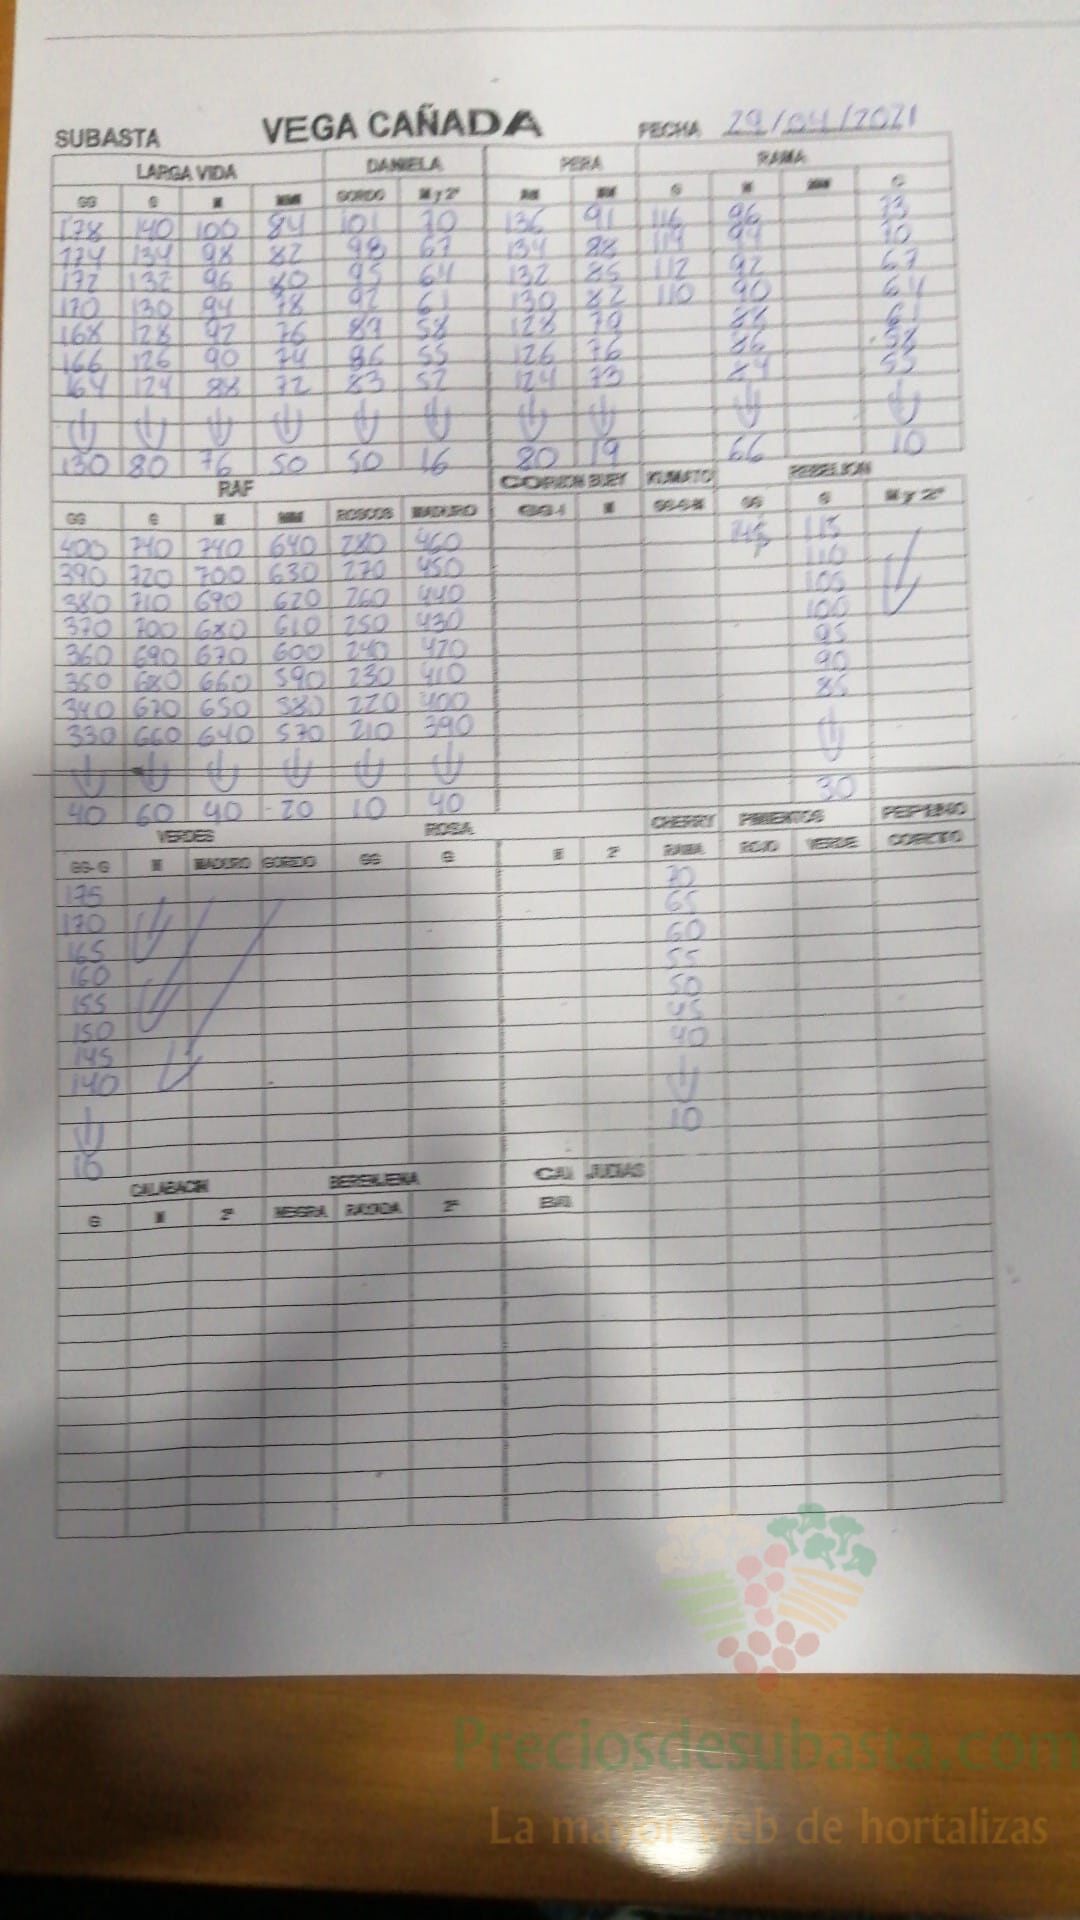 SUBASTA VEGA CAÑADA FECHA 29/04/2021
LARGA VIDA DANIELA PERA RAMA
GG G M MM GORDO M y 2ª G M MM C
178 140 100 84 101 70 136 91 116 96 73
174 134 98 82 98 67 134 88 114 94 70
172 132 96 80 95 64 132 85 112 92 67
170 130 94 78 92 61 130 82 110 90 64
168 128 92 76 89 58 128 79 88 61
166 126 90 74 86 55 126 76 86 58
164 124 88 72 83 52 124 73 84 55
130 80 76 50 50 16 80 19 66 10
RAF CORZON BUEY KUMATO REBELION
GG G M MM ROSCOS MADURO M GG G M y 2ª
400 740 740 640 280 460 145 115
390 720 700 630 270 450 110
380 710 690 620 260 440 105
370 700 680 610 250 430 100
360 690 670 600 240 420 95
350 680 660 590 230 410 90
340 670 650 580 220 400 85
330 660 640 570 210 390
40 60 40 20 10 40 30
VERDES ROSA CHERRY PIMIENTOS PEPINO
GG-G M MADURO GORDO GG G M 2ª RAMA ROJO VERDE CORTO
175 70
170 65
165 60
160 55
155 50
150 45
145 40
140
10 10
CALABACIN BERENJENA CAL JUDIAS
G M 2ª NEGRA RAYADA 2ª BA
Preciosdesubasta.com
La mayor web de hortalizas